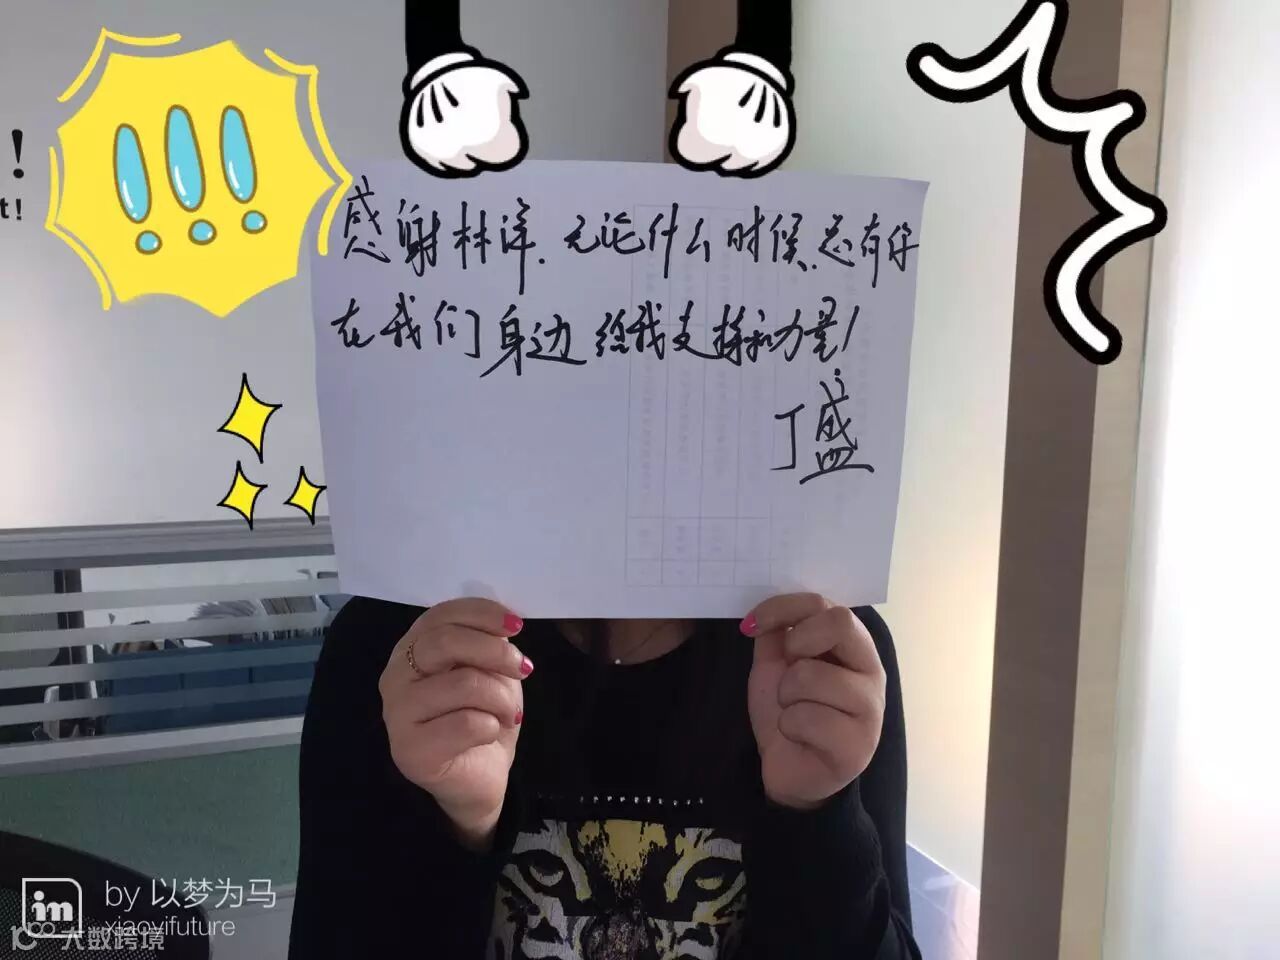 !
t!
!!!
感谢林洋、无论什么时候、总有你
在我们身边给我支持和力量！
丁盛
in
by 以梦为马
xiaoyifuture
大数跨境